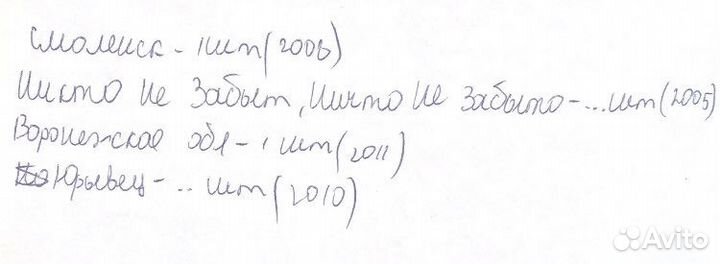 Смоленск - 1 шт (2006)
Никто не забыт, Ничто не забыто - ... шт (2005)
Воронежская обл - 1 шт (2011)
Юрьевец - .. шт (2010)
Avito